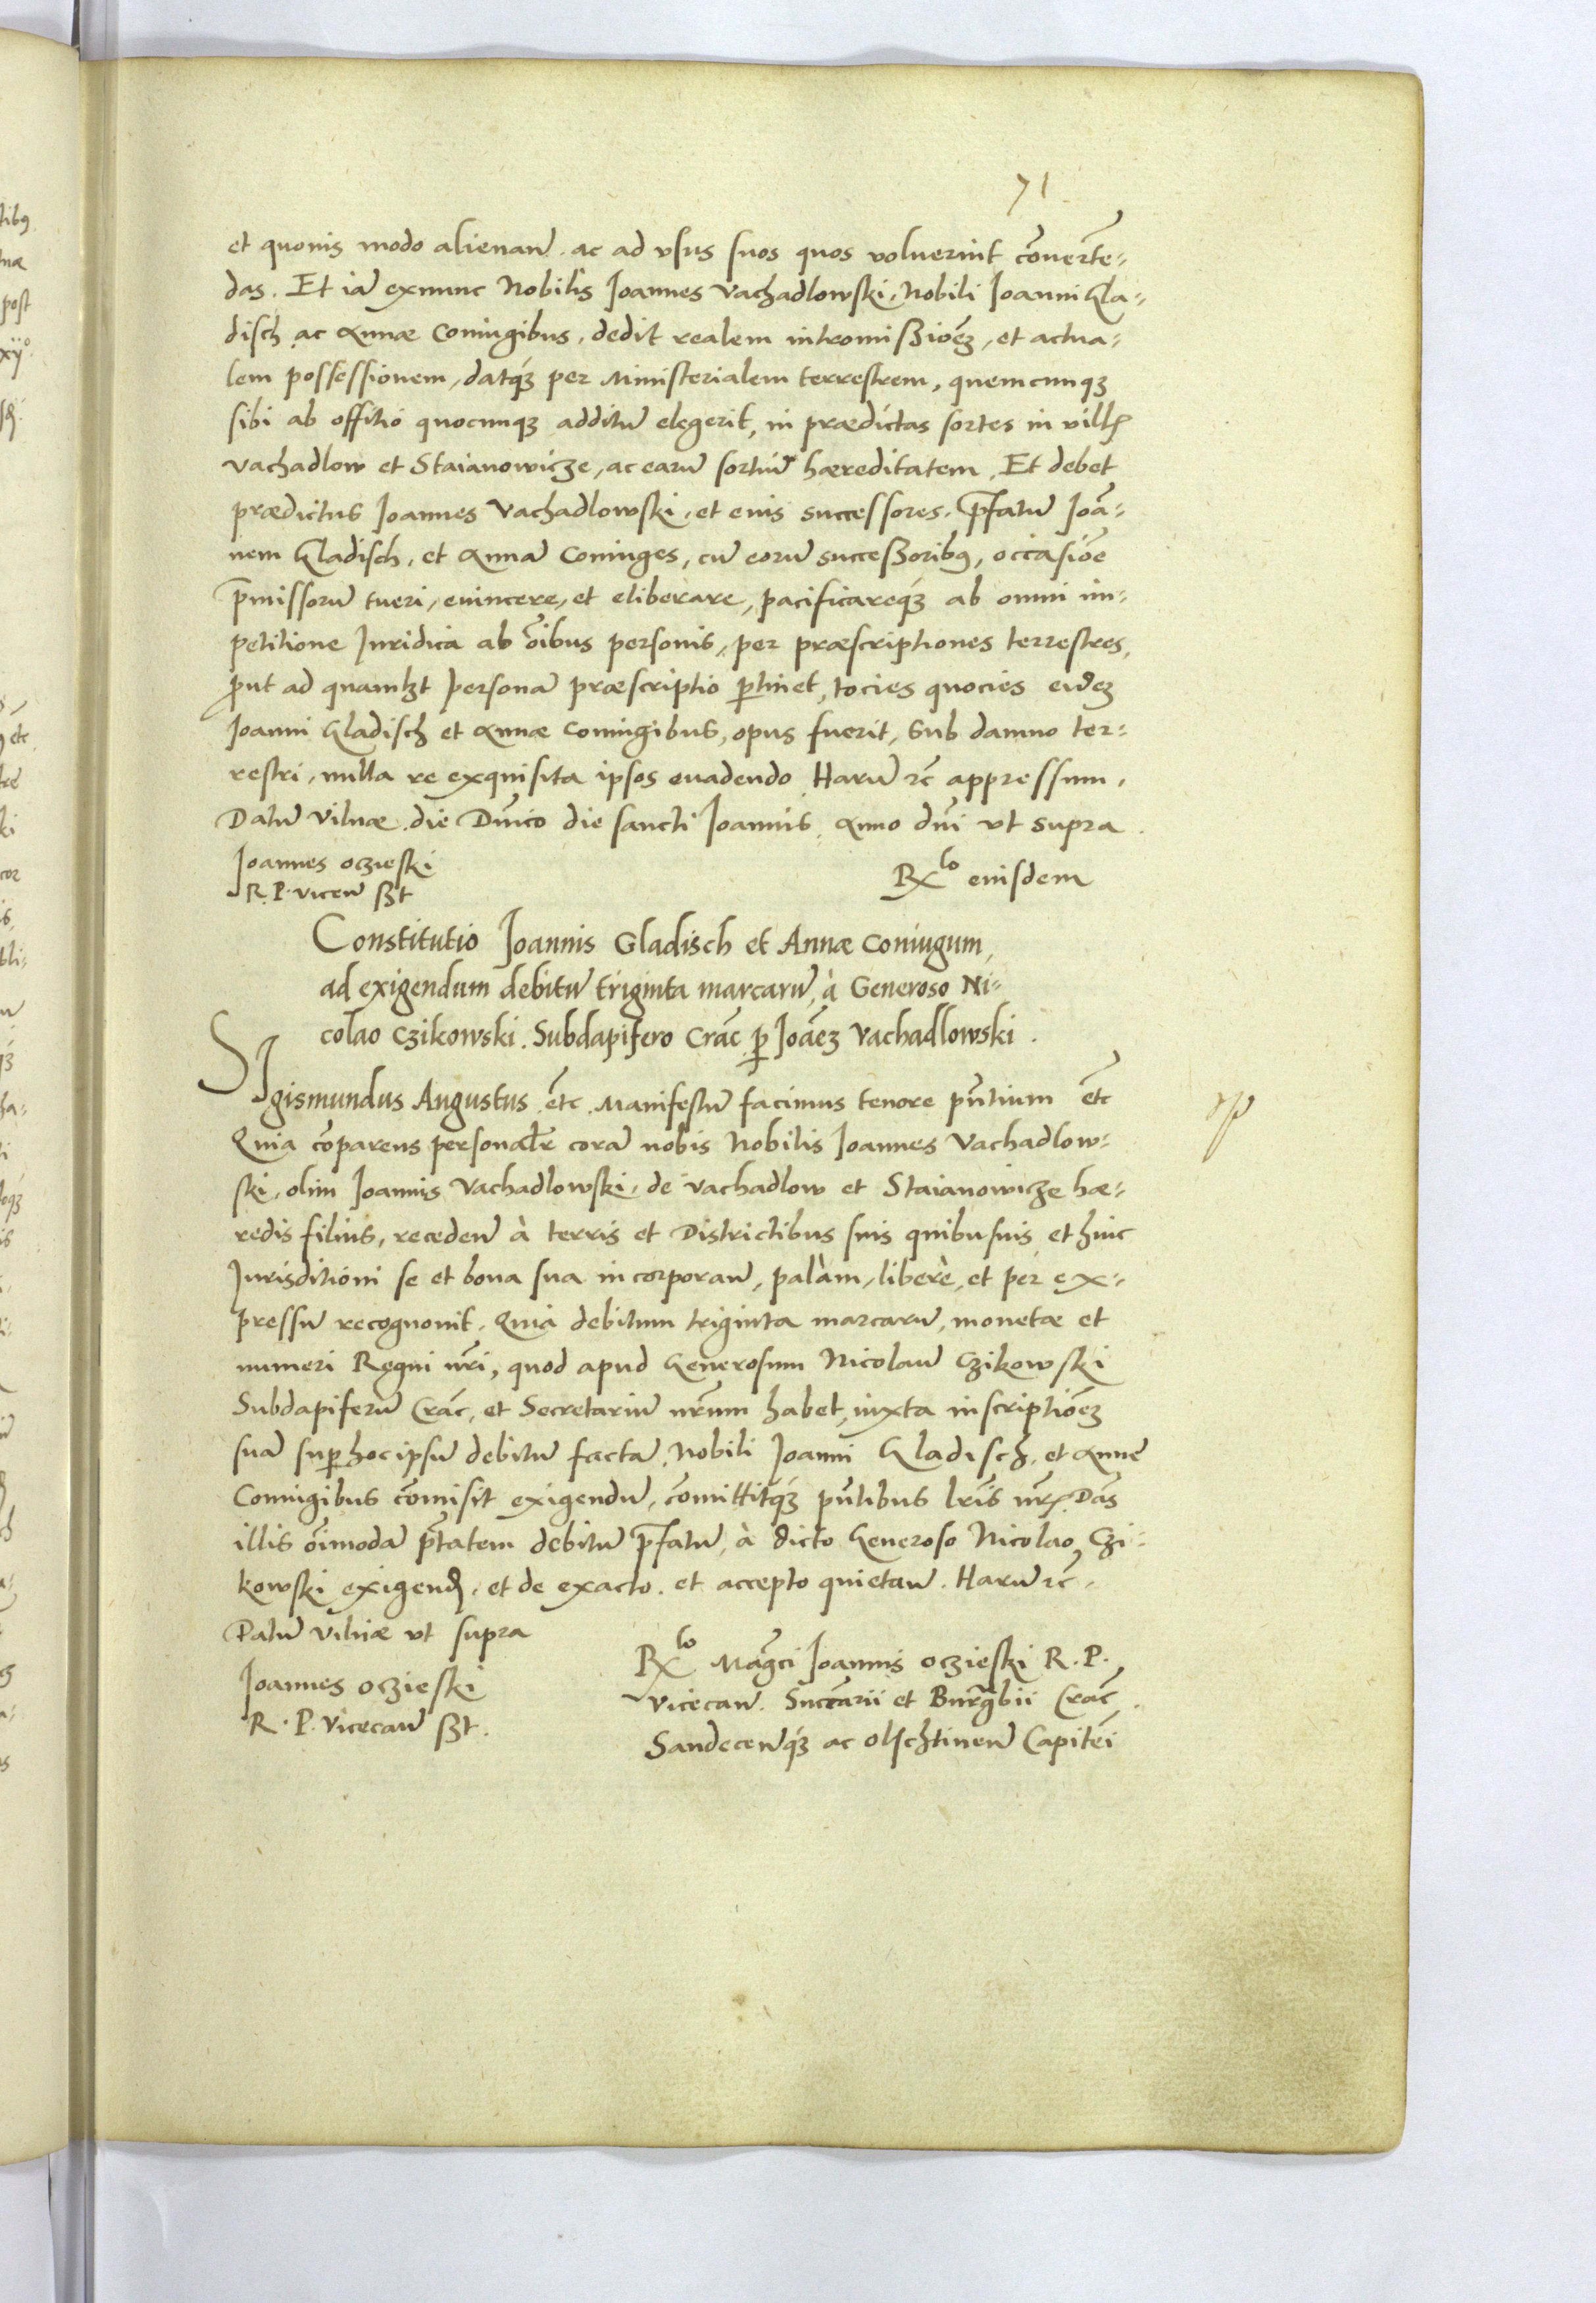 71
et quouis modo alienan̄. ac ad vsus suos quos voluerint cōuertē-
das. Et iā exnunc Nobilis Joannes Vachadlowski, Nobili Joanni Gla-
disch ac Annæ Coniugibus, dedit realem intromißiōēz, et actua-
lem possessionem, datq́ꝫ per Ministerialem terrestrem, quemcunqꝫ
sibi ab offitio quocunqꝫ additū elegerit, in prædictas sortes in villꝭ
Vachadlow et Staianowicze, ac earū sortiū hæreditatem. Et debet
prædictus Joannes Vachadlowski, et eius successores, p̄fatū Joā-
nem Gladisch, et Annā Coniuges, cū eorū succeßoribꝰ, occasiōe
p̄missorū tueri, euincere, et eliberare, pacificareq́ꝫ ab omni im-
petitione Juridica ab oībus personis, per præscriptiones terrestres,
ꝓut ad quamlꝫt personā præscriptio ꝑtinet, tocies quocies eisdēꝫ
Joanni Gladisch et Annæ Coniugibus, opus fuerit, sub damno ter-
restri, nulla re exquisita ipsos euadendo. Harū ꝛc̄ appressum.
Datū Vilnæ die Dn̄ico die sancti Joannis, Anno dn̄i vt supra.
Joannes oczieski
R. P. vicean̄ ßt
Rxlo eiusdem
Constitutio Joannis Gladisch et Annæ Coniugum,
ad exigendum debitū triginta marcarū, à Generoso Ni-
colao Czikowski. Subdapifero Crāc. ꝑ Joāeꝫ Vachadlowski.
SIgismundus Augustus et̄c. Manifestū facimus tenore pn̄tium et̄c
Quia cōparens personalr̄ corā nobis Nobilis Joannes Vachadlow-
ski, olim Joannis Vachadlowski, de Vachadlow et Staianowicze hæ-
redis filius, receden̄ à terris et Districtibus suis quibusuis et huic
Jurisditioni se et bona sua incorporan̄, palàm, liberè, et per ex-
pressū recognouit. Quia debitum triginta marcarū, monetæ et
numeri Regni nr̄i, quod apud Generosum Nicolaū Czikowski
Subdapiferū Crāc, et Secretariū nr̄um habet, iuxta inscriptiōēꝫ
suā suꝑ hoc ipsū debitū factā, Nobili Joanni Gladisch, et Annę
Coniugibus cōmisit exigendū, cōmittitq́ꝫ pn̄tibus lr̄is nr̄ꝭ. Dās
illis oīmodā ptātem debitū p̄fatū, à dicto Generoso Nicolao Czi-
kowski exigendꝭ, et de exacto. et accepto quietan̄. Harū ꝛc̄.
Datū Vilnæ vt supra
Joannes oczieski
R. P. Vicecan̄ ßt.
Rxlo Magci Joannis oczieski R. P.
Vicecan̄. Succ̄arii et Burg̃bii Crac̄,
Sandecen̄q́ꝫ ac olschtinen̄ Capitēi